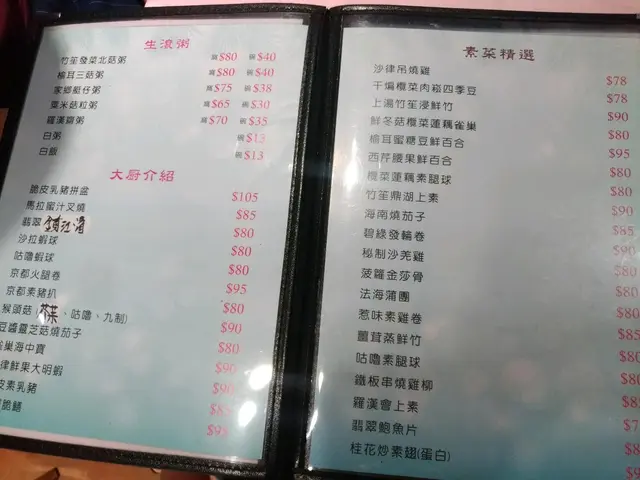 生滾粥
竹笙發菜北菇粥 窩$80 碗$40
榆耳三菇粥 窩$80 碗$40
家鄉艇仔粥 窩$75 碗$38
粟米菇粒粥 窩$65 碗$30
羅漢齋粥 窩$70 碗$35
白粥 碗$13
白飯 碗$13
大厨介紹
脆皮乳豬拼盆 $105
馬拉蜜汁叉燒 $85
翡翠 $80
沙拉蝦球 $80
咕嚕蝦球 $80
京都火腿卷 $80
京都素豬扒 $95
猴頭菇(芥菜、咕嚕、九制) $80
豆醬靈芝菇燒茄子 $90
巢海中寶 $80
律鮮果大明蝦 $90
皮素乳豬 $90
脆鱔 $85
$95
素菜精選
沙律吊燒雞 $78
干煸欖菜肉崧四季豆 $78
上湯竹笙浸鮮竹 $90
鮮冬菇欖菜蓮藕雀巢 $80
榆耳蜜糖豆鮮百合 $95
西芹腰果鮮百合 $80
欖菜蓮藕素腿球 $80
竹笙鼎湖上素 $90
海南燒茄子 $85
碧綠發輪卷 $90
秘制沙羌雞 $80
菠蘿金莎骨 $80
法海蒲團 $80
惹味素雞卷 $80
薑茸蒸鮮竹
咕嚕素腿球
鐵板串燒雞柳
羅漢會上素
翡翠鮑魚片
桂花炒素翅(蛋白)